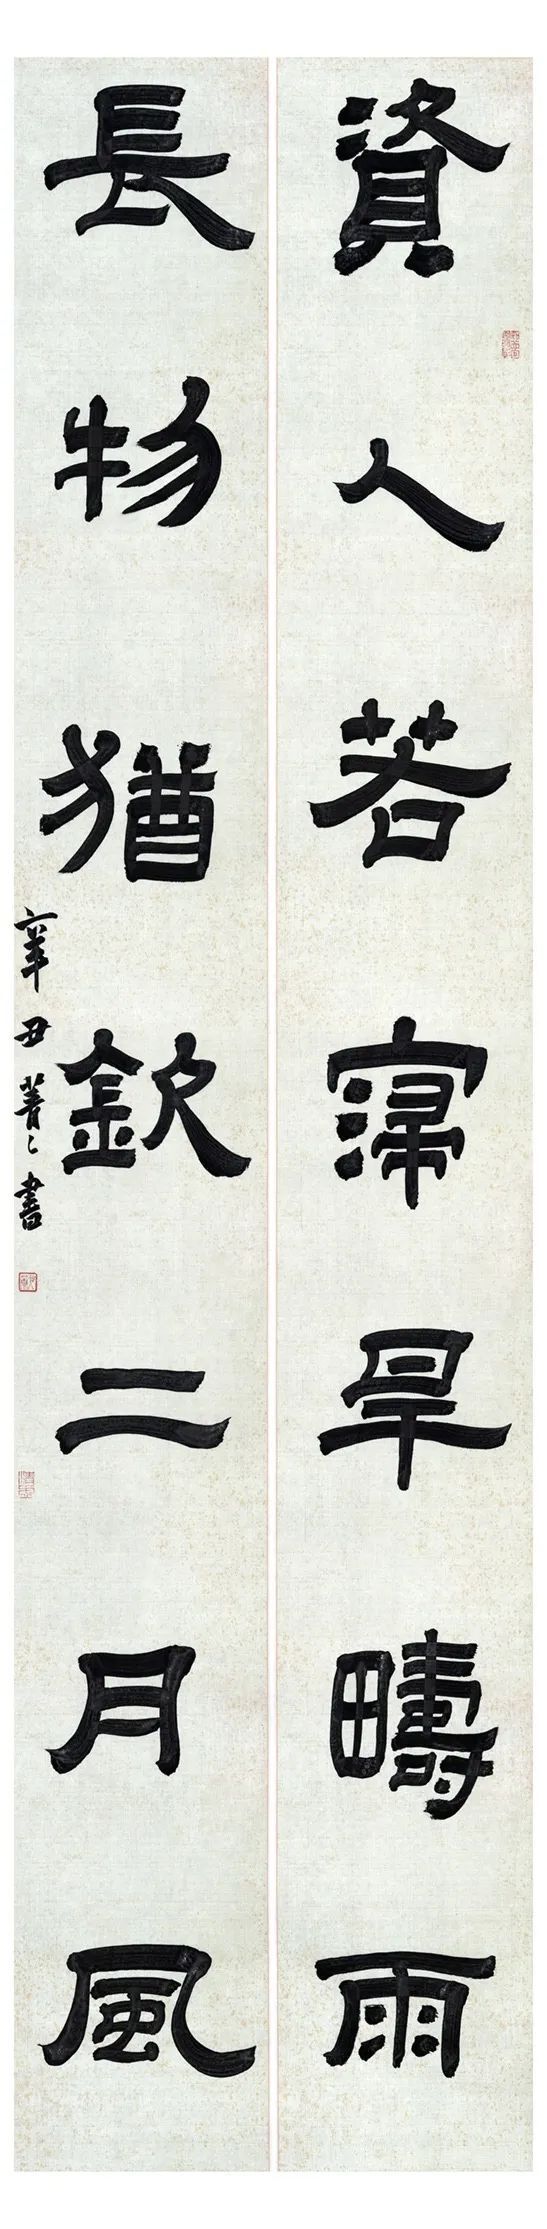 資人若旱疇雨
長物猶欽二月風
辛丑菁〻書